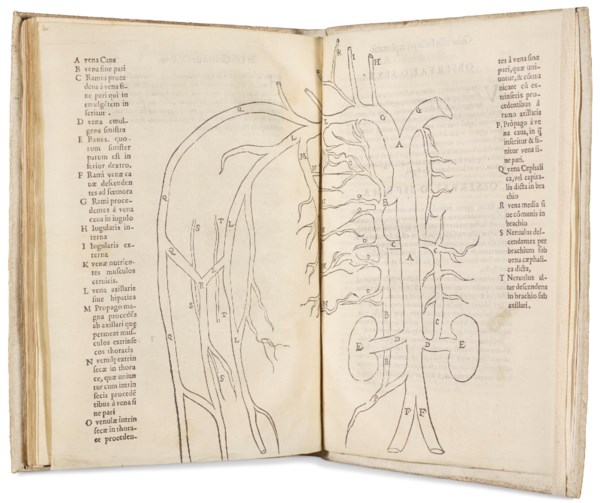 A vena Caua
B vena sine pari
C Rami proce
dentes à vena si
ne pari qui in
emulgētem in
seritur.
D vena emul-
gens sinistra
E Renes. quo-
rum sinister
parum est in
ferior dextro.
F Rami venæ ca
uæ descenden
tes ad fœmora
G Rami proce-
dentes à vena
caua in iugulo
H Iugularis in-
terna
I Iugularis ex-
terna
K venæ nutrien-
tes musculos
ceruicis.
L vena axillaris
siue hipatica
M Propago ma-
gna procedēs
ab axillari quę
permeat mus-
culos extrinse
cos thoracis
N venulę extrin
secæ in thora
ce, quæ uniun
tur cum intrin
secis procedē
tibus à vena si
ne pari
O venulæ intrin
secæ in thora-
ce proceden-
tes à vena sine
pari, quæ uni-
untur, & cōmu
nicāt cū ex-
trinsecis pro-
cedentibus à
ramo axillaris
P Propago à ve
na caua, in q̄
inseritur & fi-
nitur vena si-
ne pari.
Q vena Cephali
ca, vel capita-
lis dicta in bra
chio
R vena media si
ue cōmunis in
brachio
S Neruulus des-
cendentes per
brachium sub
uena cæphali-
ca dicta,
T Neruulus al-
ter descendens
in brachio sub
axillari.